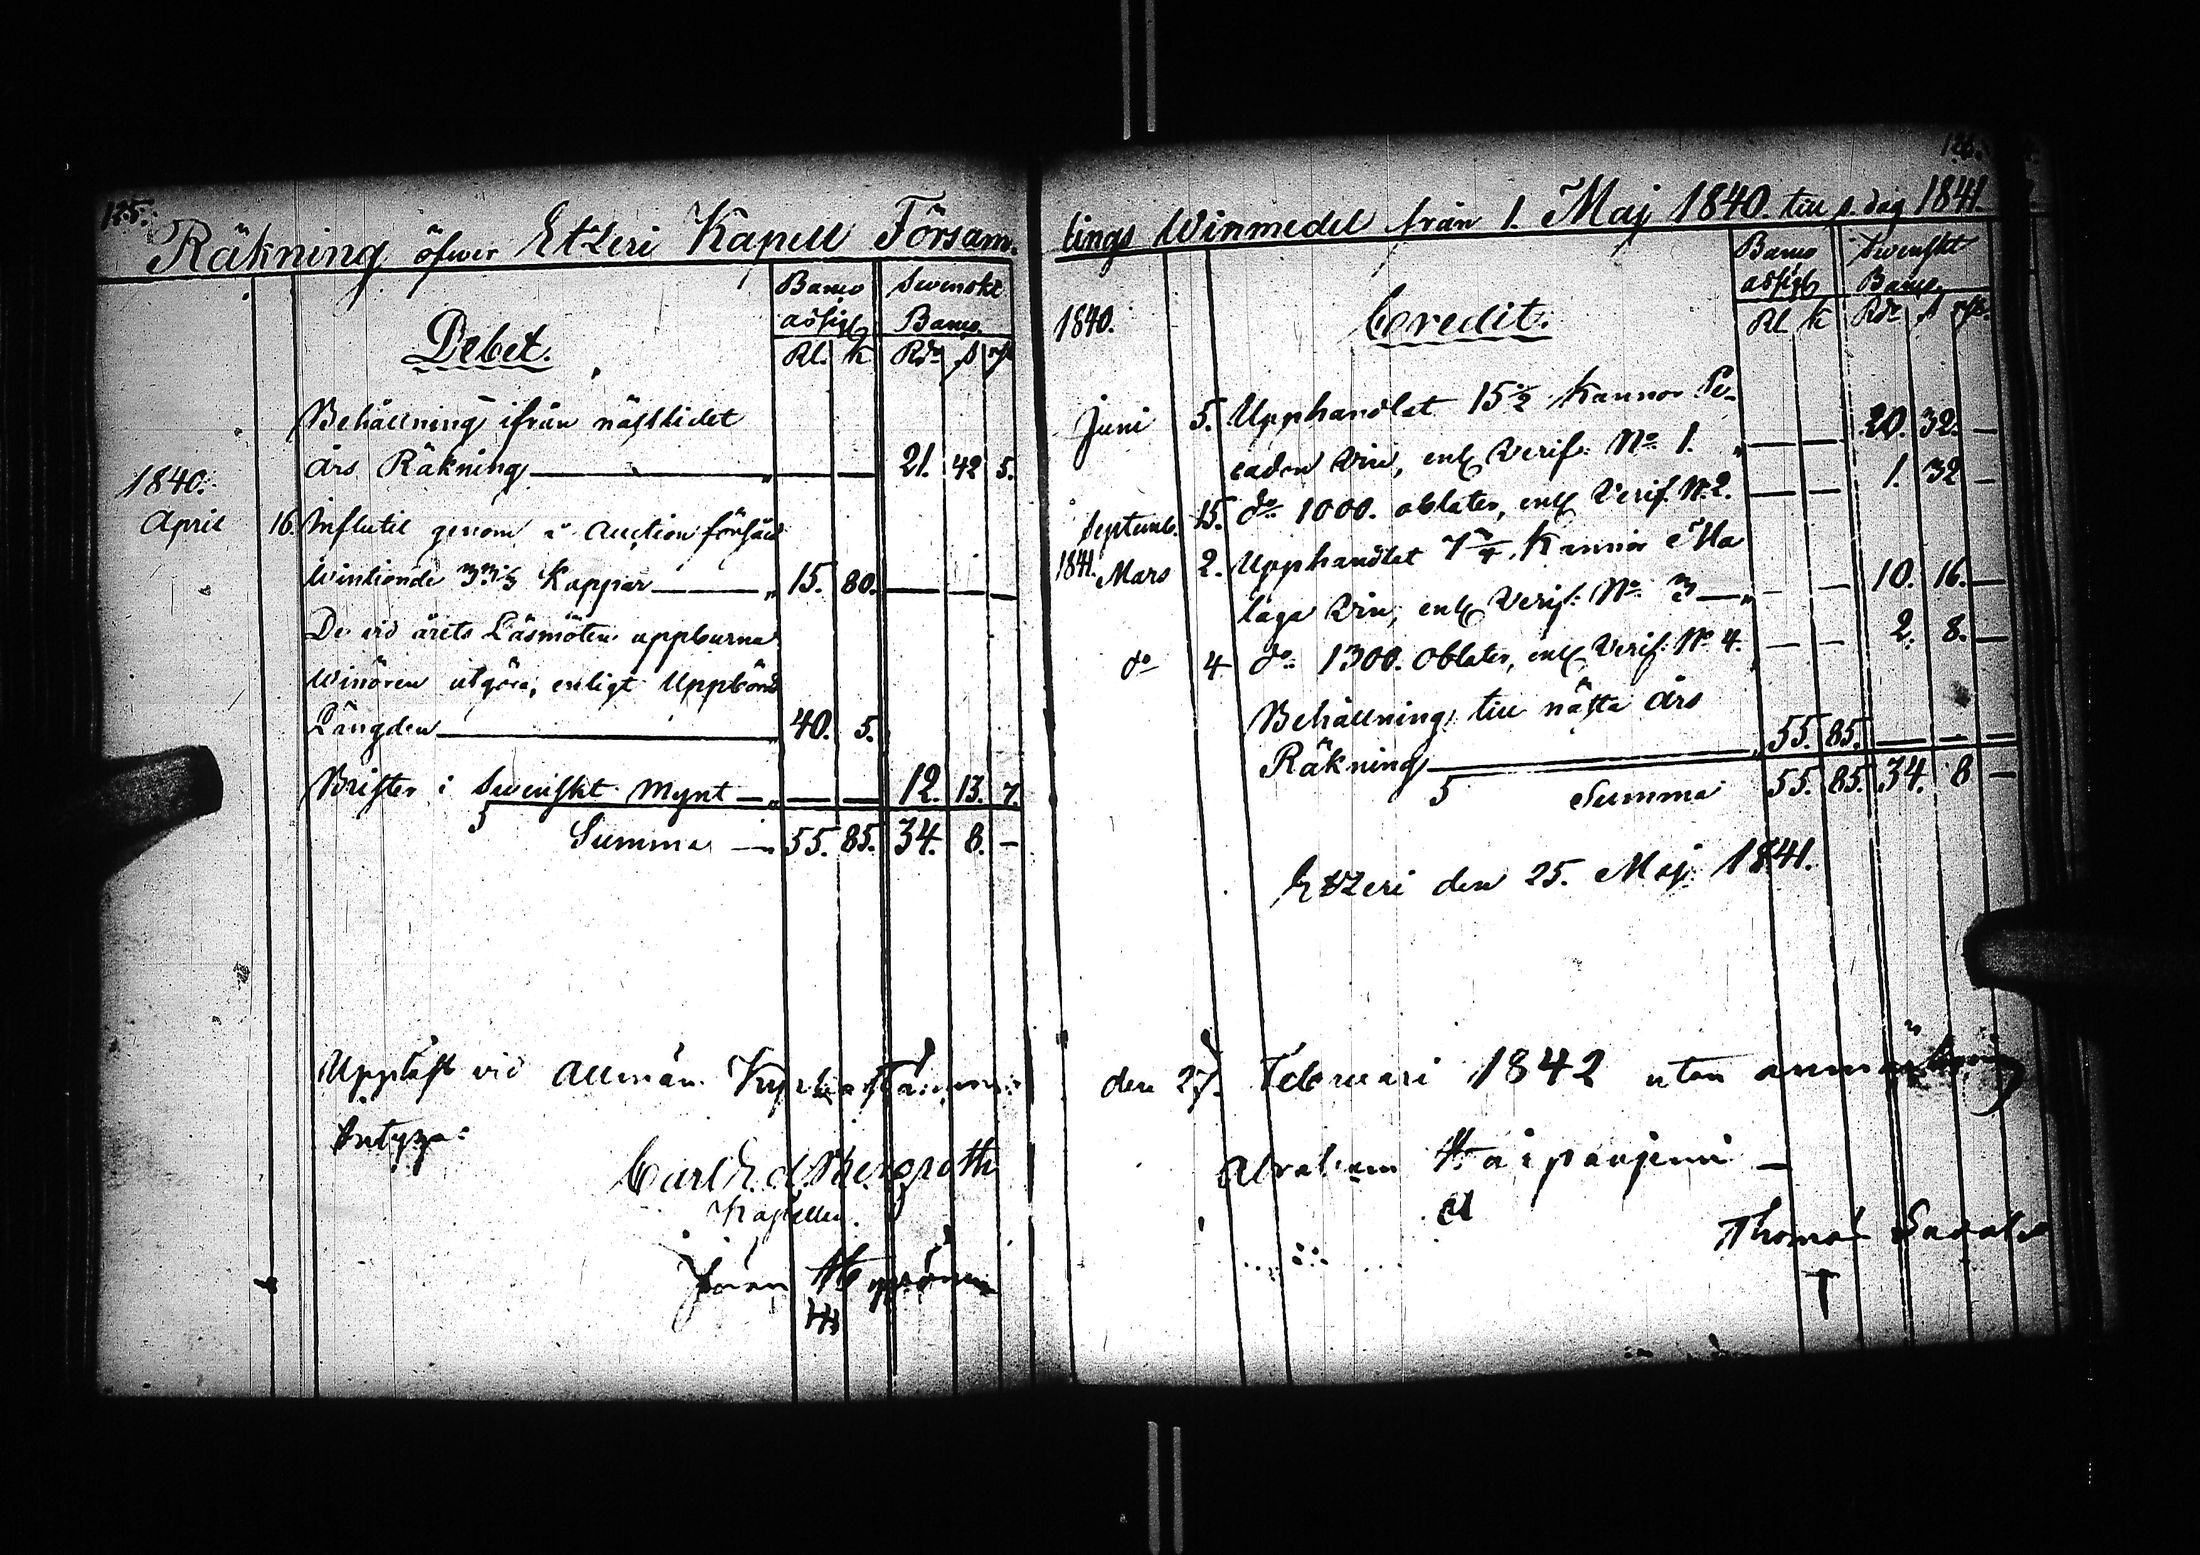 125.
Räkning öfwer Etzeri Kapell Församl.
Banco Swenskt
assig Banco
Debet.
Rl. k Rdr s rst
Behållning ifrån näst lidet
års Räkning — " — — 21. 42 5.
1840.
April 16. Influtit genom å Auction försåld
Wintionde 33⅓ Kappar — " 15. 80. — — —
De vid årets Läsmöten uppburna
Winören utgöra, enligt Uppbörds
Längden — " 40. 5.
Brister i Swenskt Mynt — " — — 12. 13. 7.
Summa — " 55. 85. 34. 8. —
Uppläst vid Allmän Kyrkostämma
betyga:
Carl Ed. Bergroth
Kapellan.
Jöran
126.
lings Winmedel från 1. Maj 1840. till s. dag 1841
Banco Swenskt
assig Banco
1840. Credit.
Rl. k Rdr s rst.
Juni 5. Upphandlat 15½ Kannor Pe-
cador Vin, enl. Verif. No. 1. " — — 20. 32. —
Septemb. 15. do 1000. oblater, enl. Verif. N. 2. — — 1. 32 —
1841. Mars 2. Upphandlat 7¾ Kannor Ma
laga Vin, enl. Verif. No. 3 — " — — 10. 16. —
do 4 do 1300. Oblater, enl. Verif. No. 4. " — — 2. 8. —
Behållning till nästa års
Räkning — " 55. 85. — — —
Summa 55. 85. 34. 8 —
Etzeri den 25. Maj 1841.
den 27. Februari 1842 utan anmärkning
Abraham
Thomas